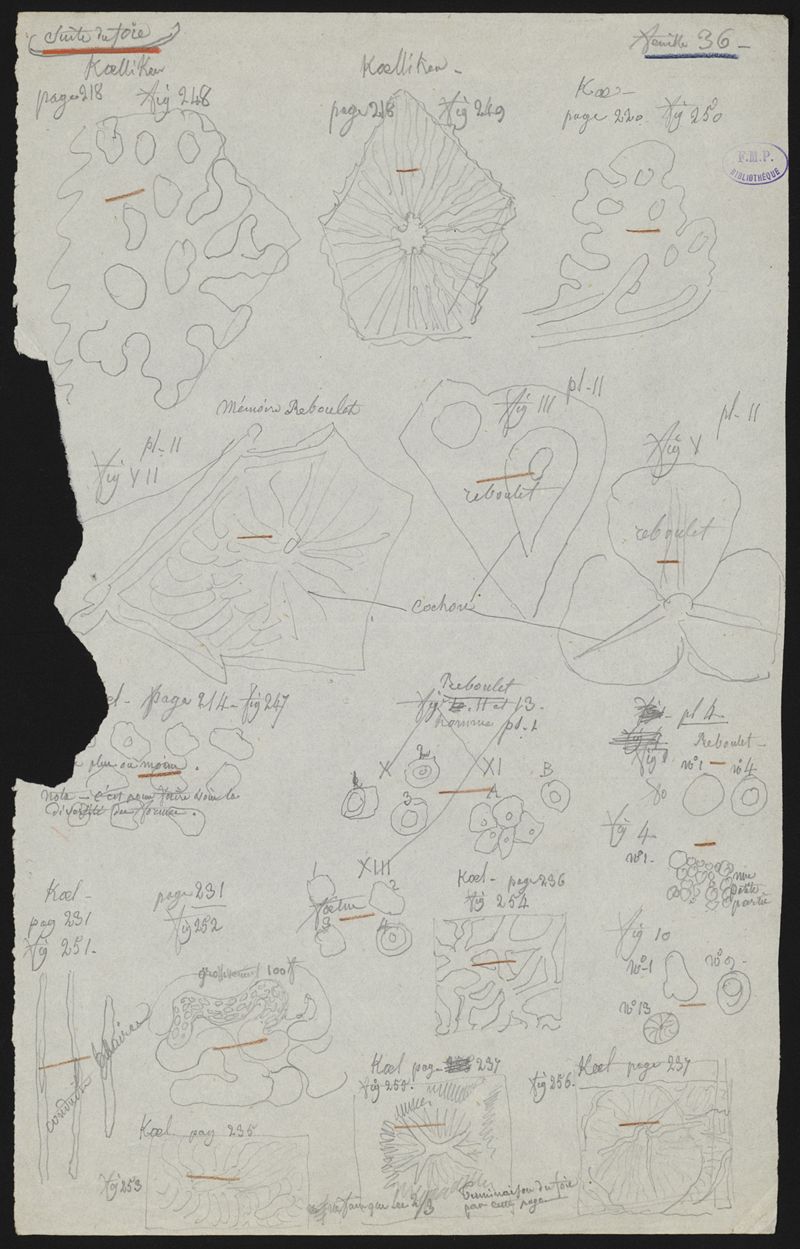 Suite du foie
feuille 36
Koelliker
page 218 fig 248
Koelliker
page 218 fig 249
Koe
page 220 fig 250
F.M.P.
BIBLIOTHÈQUE
Mémoire Reboulet
pl. II
fig VII
fig III pl. II
reboulet
pl. II
fig V
reboulet
Cochon
page 214 fig 247
plus ou moins.
Nota c'est pour faire voir la
diversité des formes.
Reboulet
fig 11 et 13.
homme pl. 1
X
2
3
XI
A
B
pl 4
Reboulet
n° 1 n° 4
fig 4
n° 1
une
petite
partie
XIII
1
2
3
4
Koel page 236
fig 254
Koel
pag 231
fig 251
page 231
fig 252
fig 10
n° 1
n° 13
conduits biliaires
grossissement 100 f
Koel page 237
fig 255
Koel page 237
fig 256
Koel pag 235
fig 253
que les 2/3
Terminaison du foie
par cette page